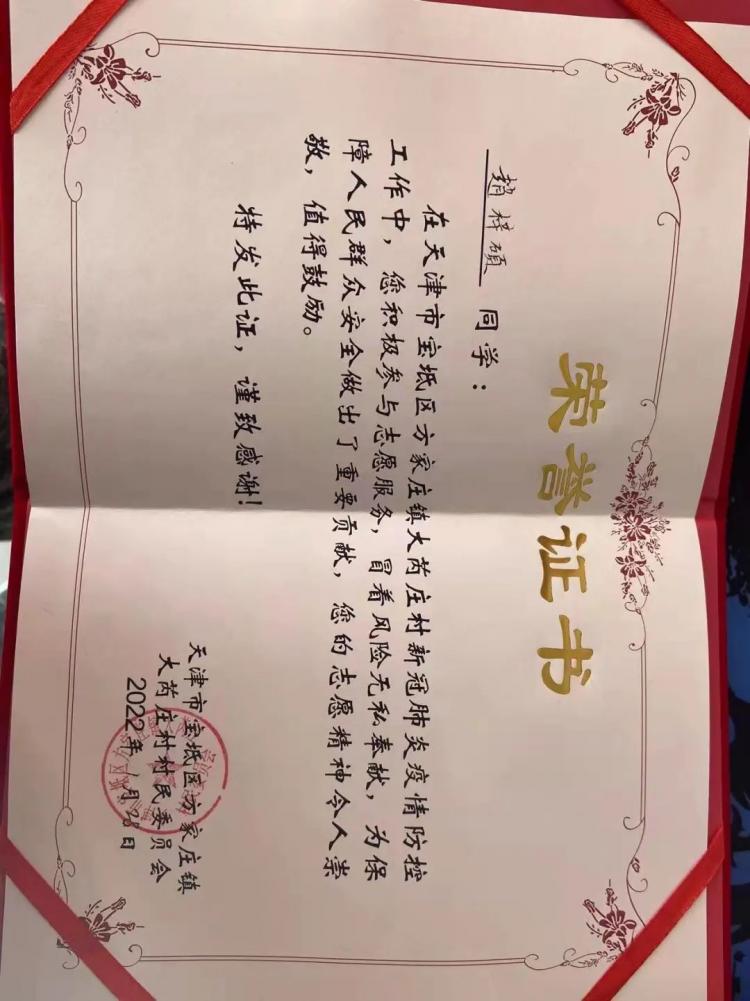 荣誉证书
趙梓硕 同学：
在天津市宝坻区方家庄镇大芮庄村新冠肺炎疫情防控
工作中，您积极参与志愿服务，冒着风险无私奉献，为保
障人民群众安全做出了重要贡献，您的志愿精神令人崇
敬，值得鼓励。
特发此证，谨致感谢！
天津市宝坻区方家庄镇
大芮庄村村民委员会
2022年1月20日